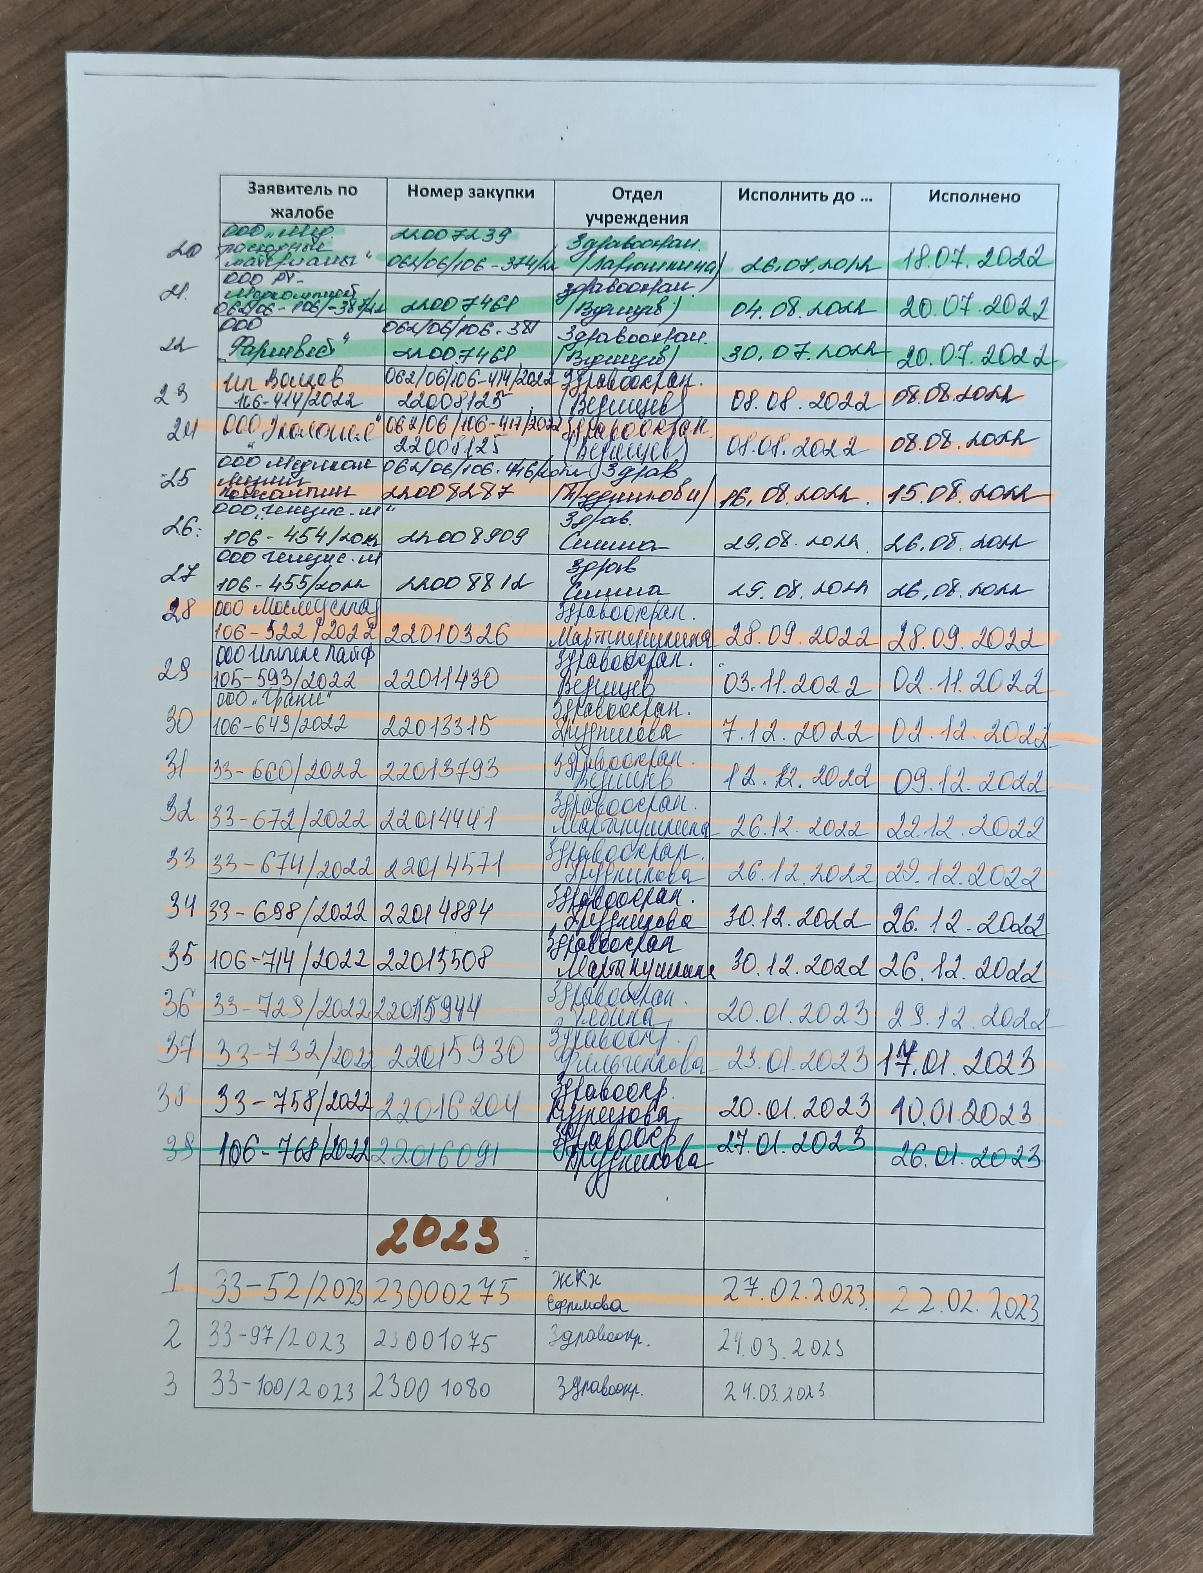 Заявитель по жалобе Номер закупки Отдел учреждения Исполнить до ... Исполнено
20 ООО „Мед расходные материалы" 22007239 062/06/106-374/22 Здравоохран. 26.07.2022 18.07.2022
21. ООО 062/06-106/-387/22 22007461 Здравоохран. (Верищев) 04.08.2022 20.07.2022
22 ООО Фармвест" 062/06/106-381 22007461 Здравоохран. (Верищев) 30.07.2022 20.07.2022
23 ип Волков 106-414/2022 062/06/106-414/2022 22008125 Здравоохран. (Верищев) 08.08.2022 08.08.2022
24 ООО 062/06/106-417/2022 22008125 Здравоохран. (Верищев) 08.08.2022 08.08.2022
25 ООО 062/06/106-416/2022 22008287 Здрав (Трудникова) 16.08.2022 15.08.2022
26. ООО „Генезис-М" 106-454/2022 22008909 Здрав. Силина 29.08.2022 26.08.2022
27 ООО Генезис-М 106-455/2022 22008812 Здрав Силина 29.08.2022 26.08.2022
28 ООО 106-522/2022 22010326 Здравоохран. Мартынушкина 28.09.2022 28.09.2022
29 ООО Иммект Лайф 105-593/2022 22011430 Здравоохран. Верищев 03.11.2022 02.11.2022
30 ООО „Грани" 106-649/2022 22013315 Здравоохран. Трудникова 7.12.2022 02.12.2022
31 33-660/2022 22013793 Здравоохран. Верищев 12.12.2022 09.12.2022
32 33-672/2022 22014441 Здравоохран. Мартынушкина 26.12.2022 22.12.2022
33 33-674/2022 22014571 Здравоохран. Трудникова 26.12.2022 29.12.2022
34 33-698/2022 22014884 Здравоохран. Трудникова 30.12.2022 26.12.2022
35 106-714/2022 22013508 Здравоохран Мартынушкина 30.12.2022 26.12.2022
36 33-728/2022 22015944 Здравоохран. 20.01.2023 29.12.2022
37 33-732/2022 22015930 Здравоохр. Фильченкова 23.01.2023 17.01.2023
38 33-758/2022 22016204 Здравоохр. Кузнецова 20.01.2023 10.01.2023
39 106-768/2022 22016091 Здравоохр. Трудникова 27.01.2023 26.01.2023
2023
1 33-52/2023 23000275 ЖКХ Ефремова 27.02.2023. 22.02.2023
2 33-97/2023 23001075 Здравоохр. 24.03.2023
3 33-100/2023 23001080 Здравоохр. 24.03.2023